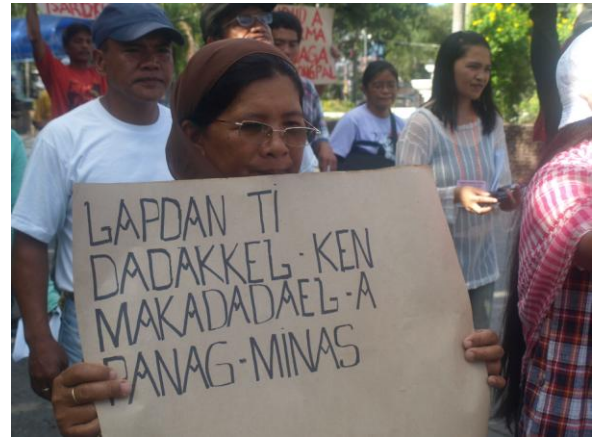 LAPDAN TI
DADAKKEL-KEN
MAKADADAEL-A
PANAG-MINAS